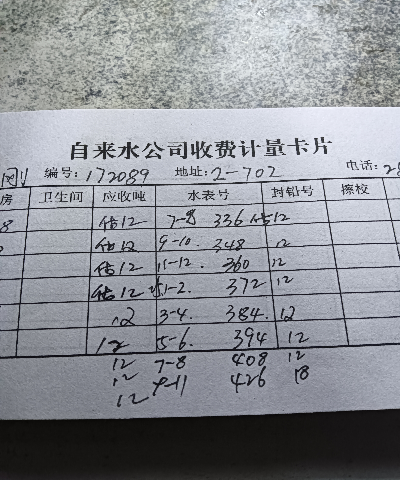 自来水公司收费计量卡片
刚 编号: 172089 地址: 2-702 电话: 28
房 卫生间 应收吨 水表号 封铅号 擦校
8 估12 7-8 336 估12
估12 9-10. 348 12
估12 11-12. 360 12
估12 1-2. 372 12
12 3-4. 384. 12
12 5-6. 394 12
12 7-8 408 12
12 9-11 426 18
12